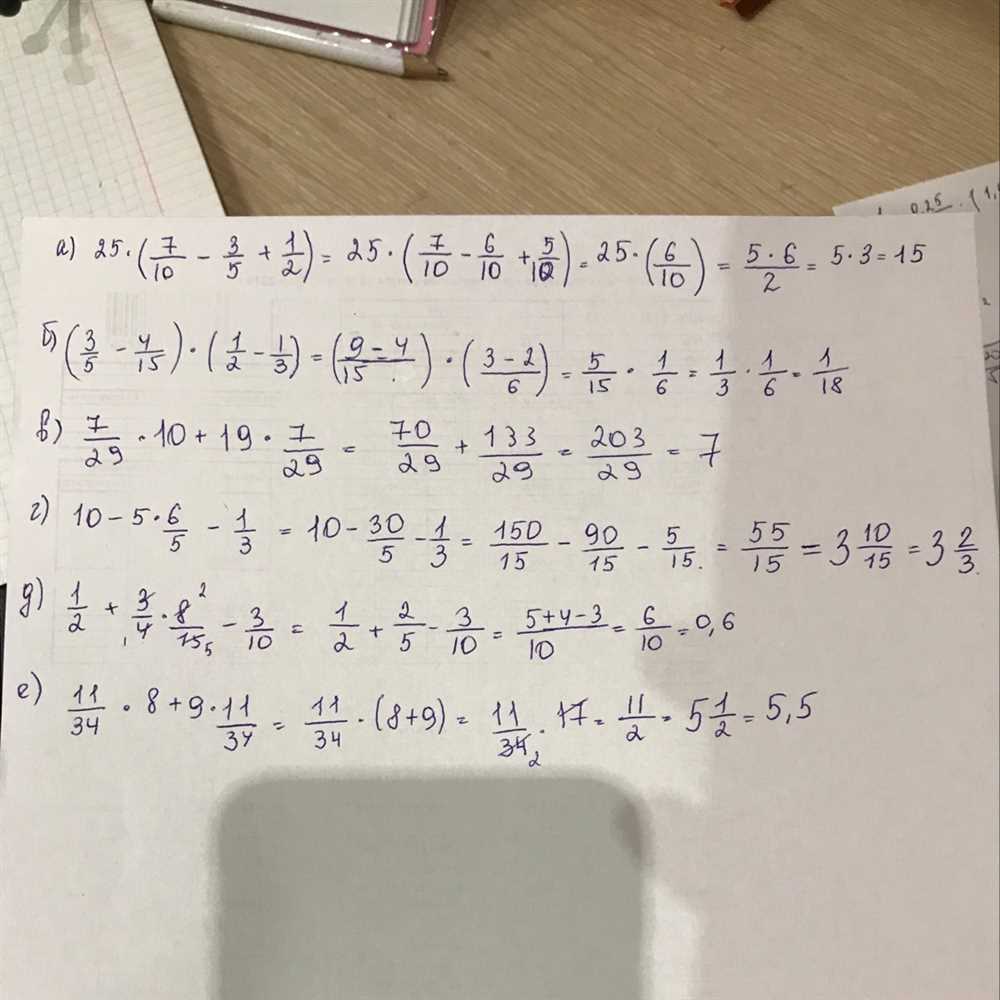 0,25 · (1,
а) 25·(7/10 − 3/5 + 1/2) = 25·(7/10 − 6/10 + 5/10) = 25·(6/10) = 5·6/2 = 5·3 = 15
б) (3/5 − 4/15)·(1/2 − 1/3) = (9−4/15)·(3−2/6) = 5/15 · 1/6 = 1/3 · 1/6 = 1/18
в) 7/29 ·10 + 19· 7/29 = 70/29 + 133/29 = 203/29 = 7
г) 10 − 5· 6/5 − 1/3 = 10 − 30/5 − 1/3 = 150/15 − 90/15 − 5/15 = 55/15 = 3 10/15 = 3 2/3
д) 1/2 + 3/4 · 8/15 − 3/10 = 1/2 + 2/5 − 3/10 = 5+4−3/10 = 6/10 = 0,6
е) 11/34 · 8 + 9 · 11/34 = 11/34 · (8+9) = 11/34 · 17 = 11/2 = 5 1/2 = 5,5